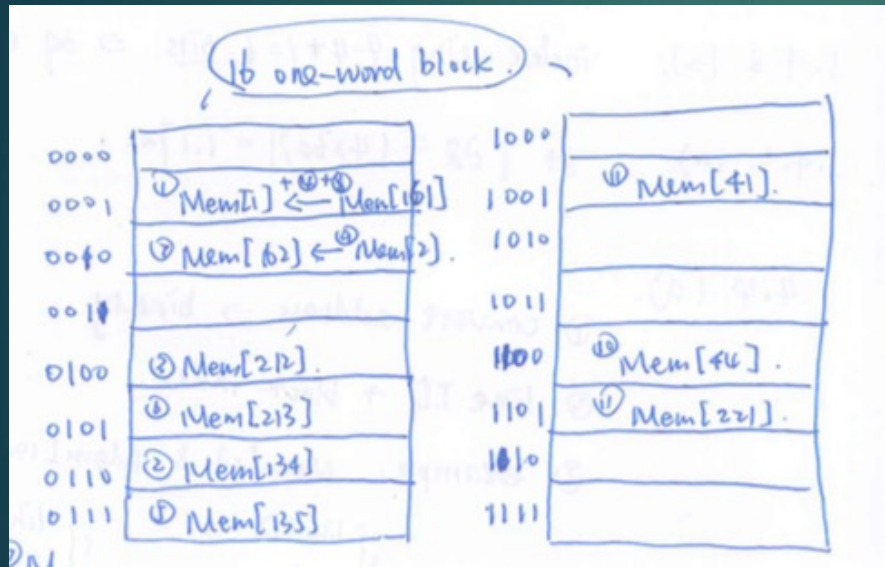 16 one-word block.
0000
0001 ① Mem[1] ← Mem[161]
0010 Mem[162] ← Mem[2].
0011
0100 ③ Mem[212].
0101 ⑥ Mem[213]
0110 ② Mem[134]
0111 ⑤ Mem[135]
1000
1001 Mem[41].
1010
1011
1100 ⑩ Mem[44].
1101 ⑪ Mem[221].
1110
1111